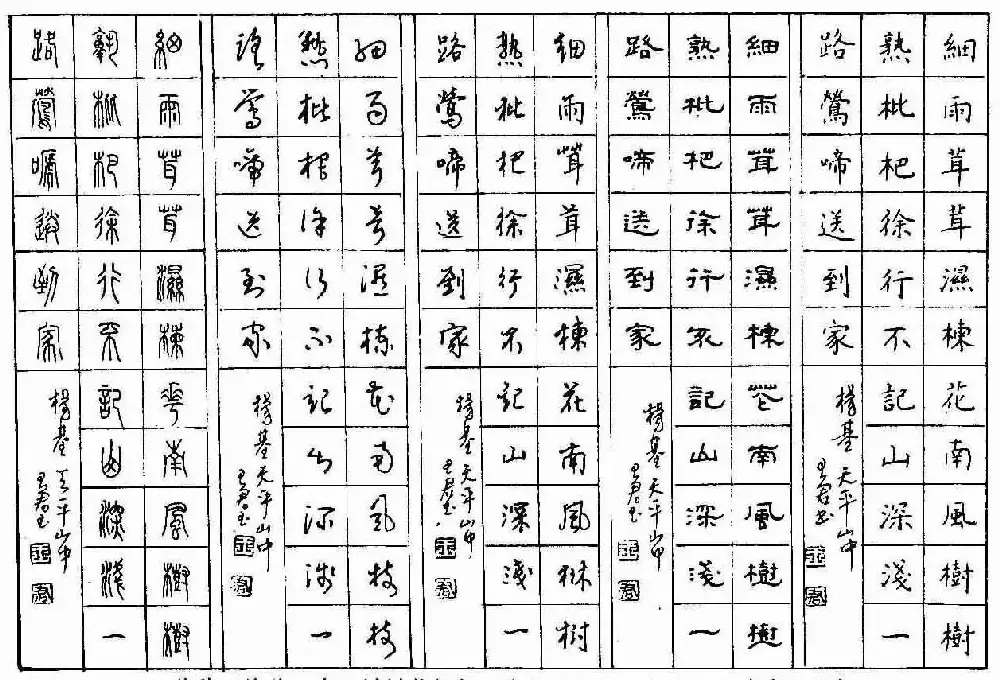 細雨茸茸濕楝花南風樹樹
熟枇杷徐行不記山深淺一
路鶯啼送到家
楊基天平山中
細雨茸茸濕楝花南風樹樹
熟枇杷徐行不記山深淺一
路鶯啼送到家
楊基天平山中
細雨茸茸濕楝花南風樹樹
熟枇杷徐行不記山深淺一
路鶯啼送到家
楊基天平山中
細雨茸茸濕楝花南風樹樹
熟枇杷徐行不記山深淺一
路鶯啼送到家
楊基天平山中
細雨茸茸濕楝花南風樹樹
熟枇杷徐行不記山深淺一
路鶯啼送到家
楊基天平山中